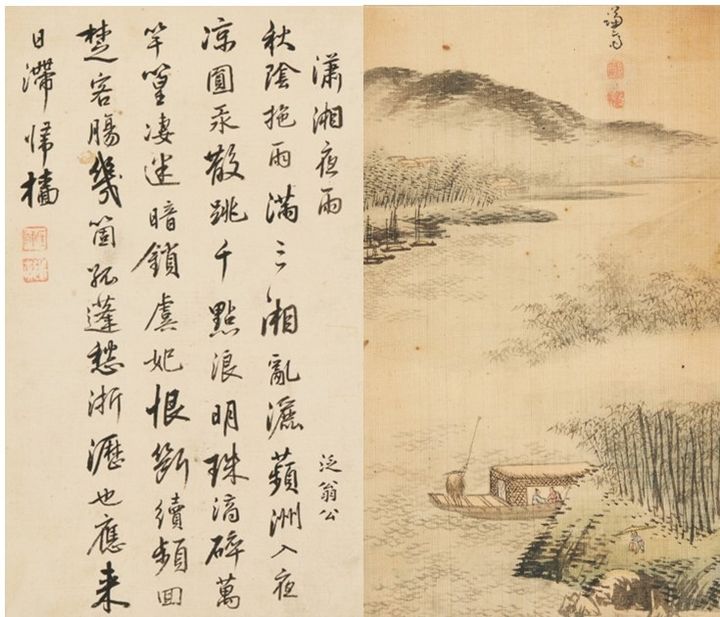 瀟湘夜雨
泛翁公
秋陰拖雨滿三湘亂灑蘋洲入夜
凉圓汞散跳千點浪明珠滴碎萬
竿篁凄迷暗鎖虞妃恨斷續頻回
楚客腸幾箇孤蓬愁淅瀝也應来
日滯帰檣
謙齋